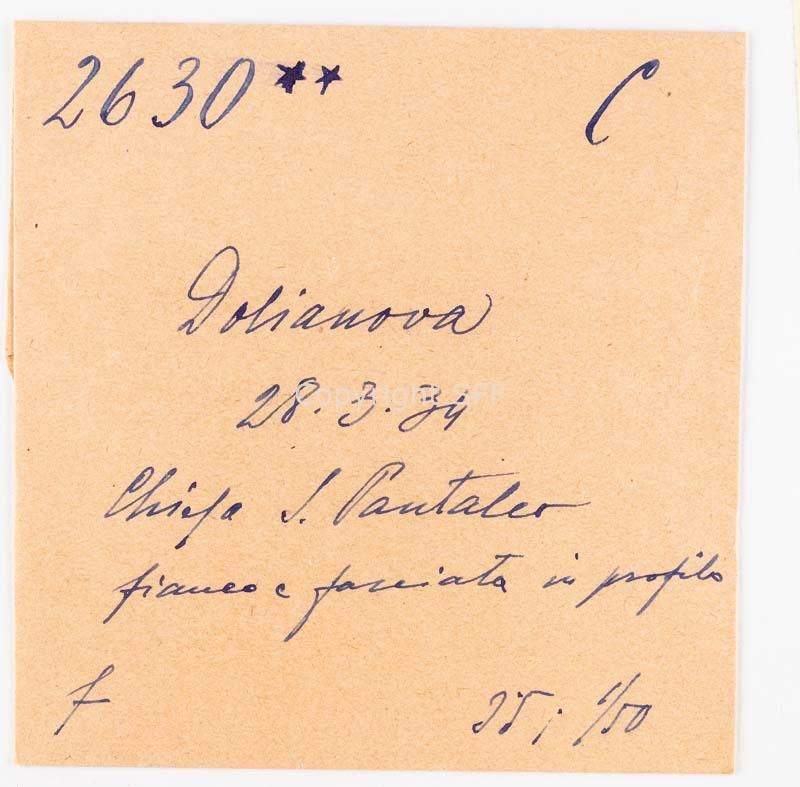 2630** C
Dolianova
28.3.54
Copyright SFF
Chiesa S. Pantaleo
fianco e facciata in profilo
f 35; 1/50